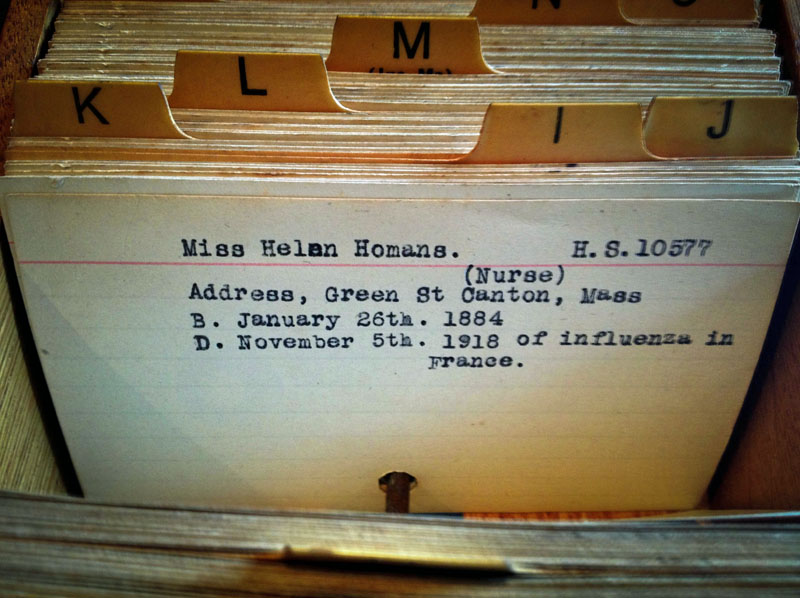 N
M
L
K
I
J
Miss Helen Homans. H.S.10577
(Nurse)
Address, Green St Canton, Mass
B. January 26th. 1884
D. November 5th. 1918 of influenza in
France.